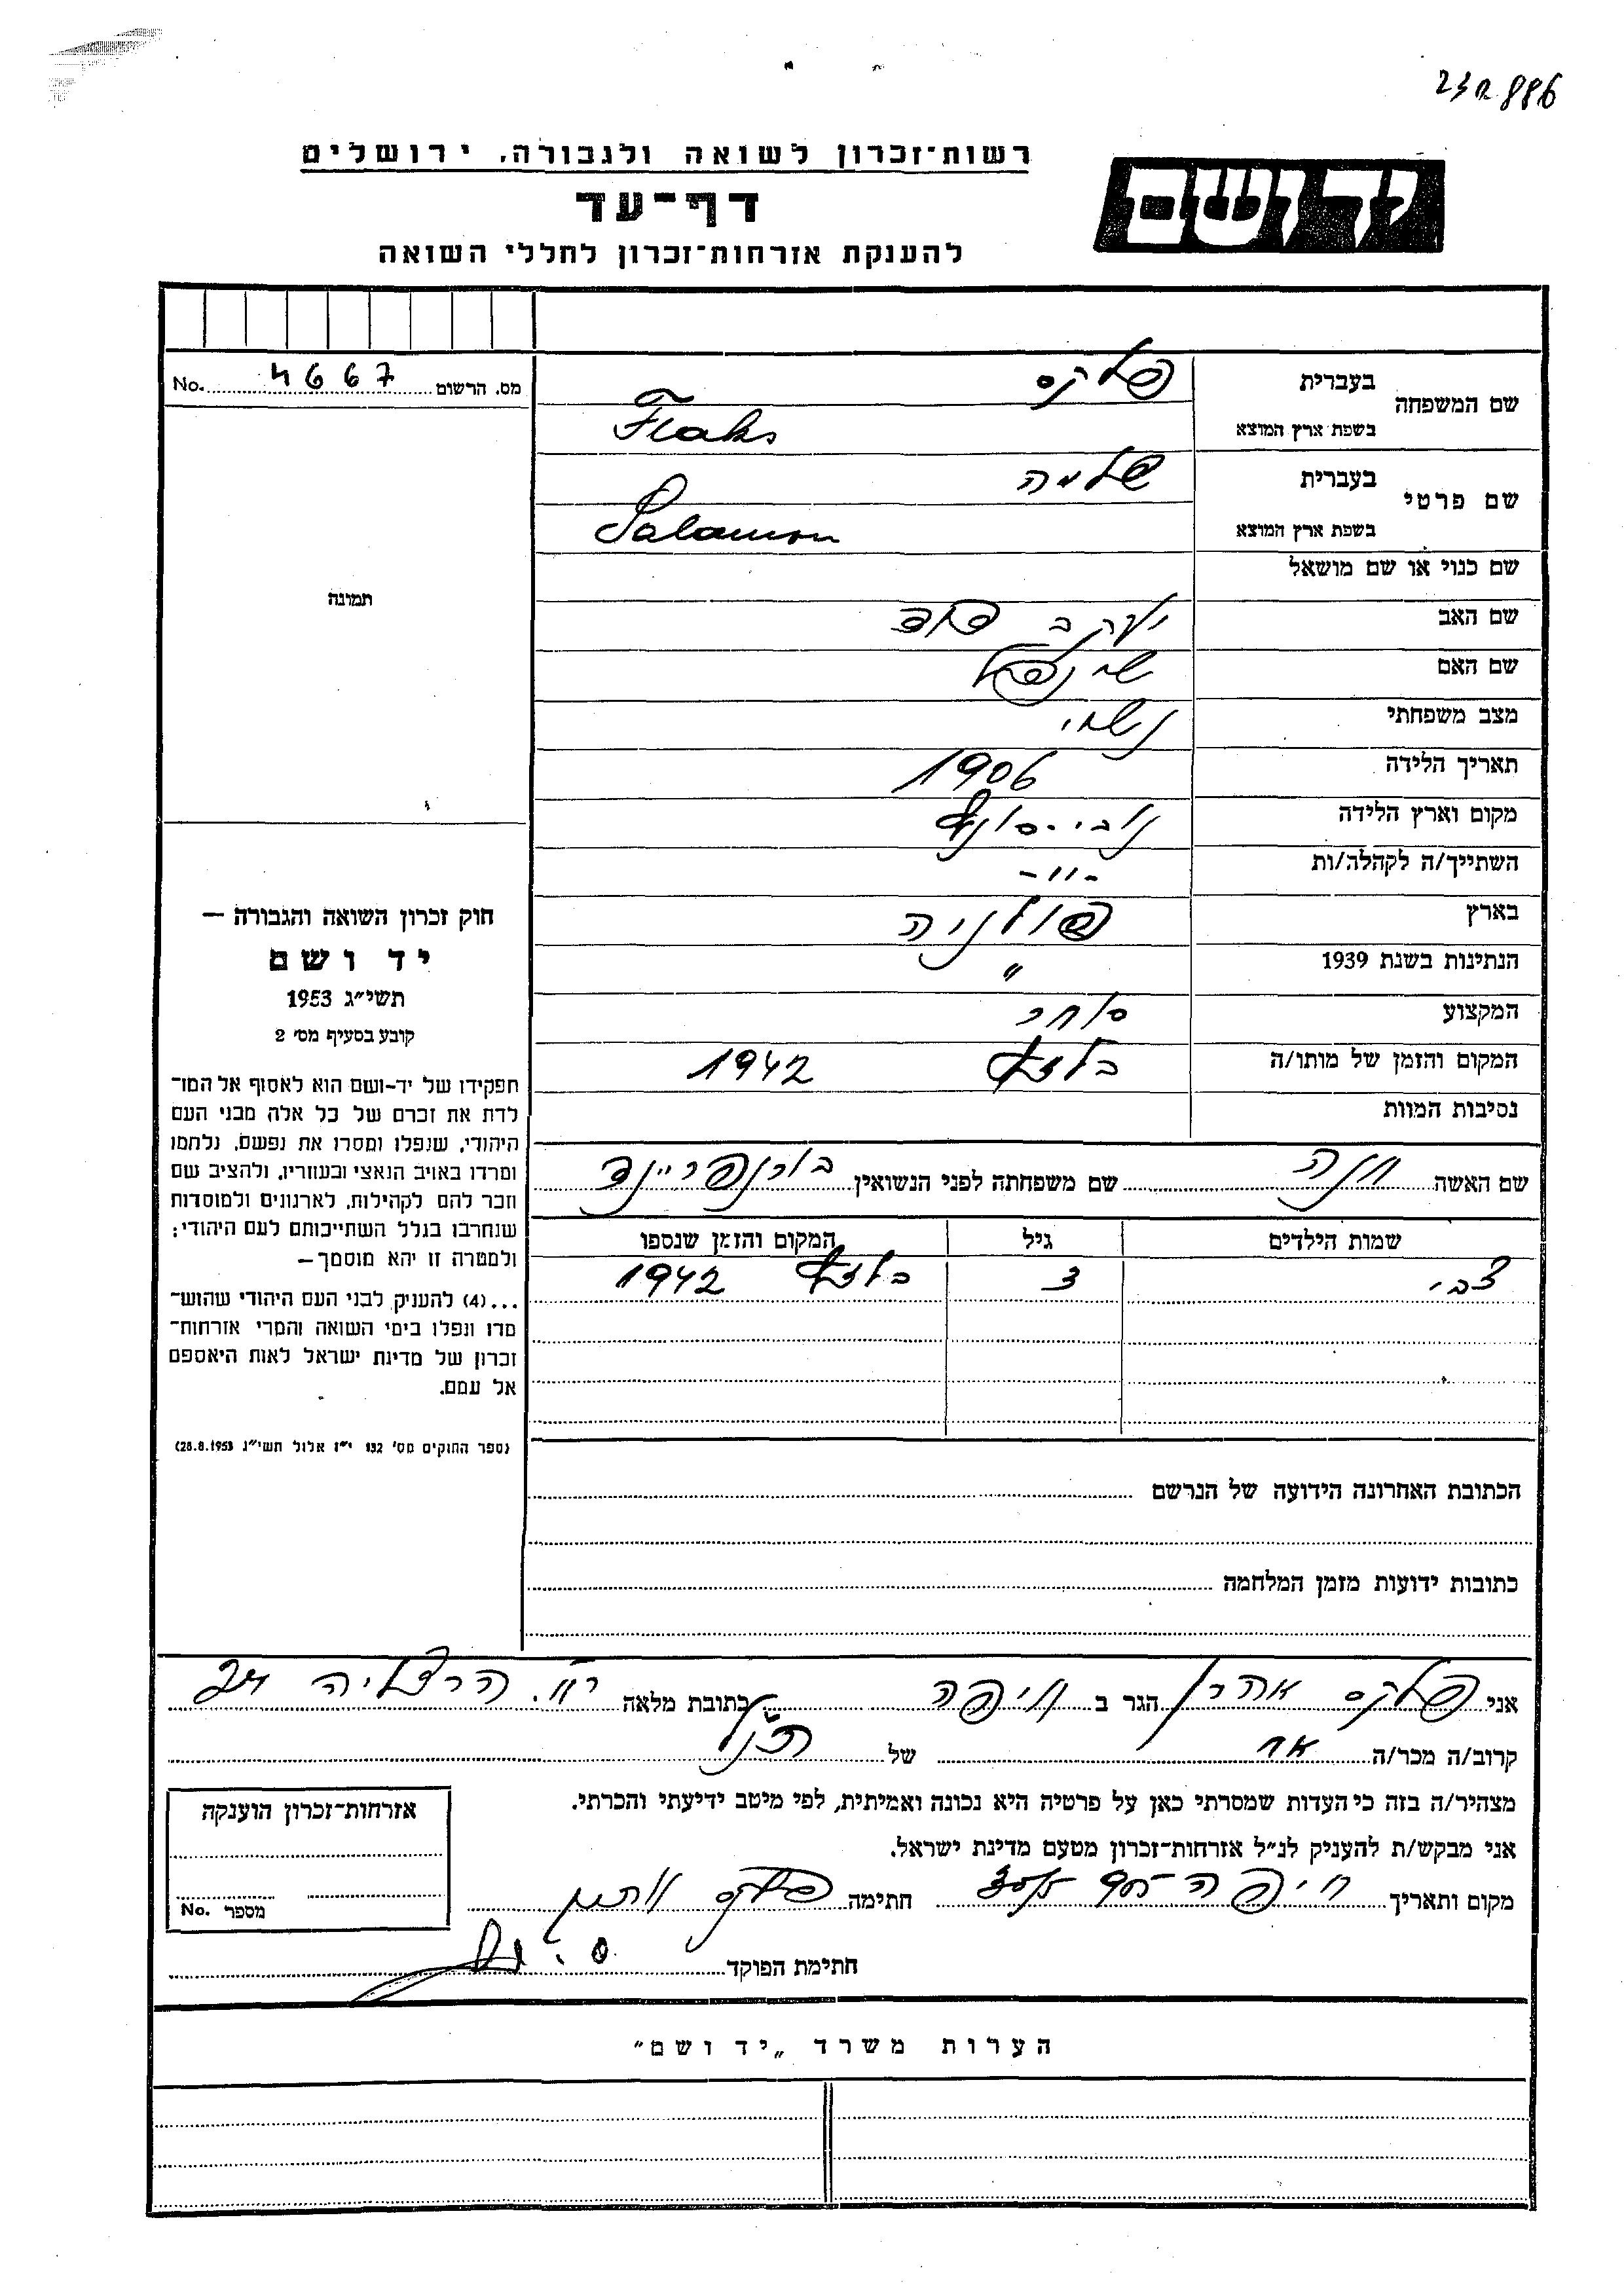 23 12 886
רשות־זכרון לשואה ולגבורה, ירושלים
יד ושם
דף־עד
להענקת אזרחות־זכרון לחללי השואה
מס. הרשום 4667 No.
שם המשפחה
בעברית פלקס
בשפת ארץ המוצא Flaks
שם פרטי
בעברית שלמה
בשפת ארץ המוצא Salamon
שם כנוי או שם מושאל
שם האב יעקב דוד
שם האם שיינדל
מצב משפחתי נשוי
תאריך הלידה 1906
מקום וארץ הלידה נובי-סונץ
השתייך/ה לקהלה/ות -"-
בארץ פולניה
הנתינות בשנת 1939 "
המקצוע סוחר
המקום והזמן של מותו/ה בלזץ 1942
נסיבות המוות
תמונה
חוק זכרון השואה והגבורה —
יד ושם
תשי״ג 1953
קובע בסעיף מס׳ 2
תפקידו של יד-ושם הוא לאסוף אל המו־
לדת את זכרם של כל אלה מבני העם
היהודי, שנפלו ומסרו את נפשם, נלחמו
ומרדו באויב הנאצי ובעוזריו, ולהציב שם
וזכר להם לקהילות, לארגונים ולמוסדות
שנחרבו בגלל השתייכותם לעם היהודי;
ולמטרה זו יהא מוסמך —
...(4) להעניק לבני העם היהודי שהוש־
מדו ונפלו בימי השואה והמרי אזרחות־
זכרון של מדינת ישראל לאות היאספם
אל עמם.
(ספר החוקים מס׳ 132 י״ז אלול תשי״ג 28.8.1953)
שם האשה חנה שם משפחתה לפני הנשואין בורנפריינד
שמות הילדים גיל המקום והזמן שנספו
צבי 3 בלזץ 1942
הכתובת האחרונה הידועה של הנרשם
כתובות ידועות מזמן המלחמה
אני פלקס אהרן הגר ב חיפה כתובת מלאה רח. הרצליה
קרוב/ה מכר/ה אח של הנ"ל
מצהיר/ה בזה כי העדות שמסרתי כאן על פרטיה היא נכונה ואמיתית, לפי מיטב ידיעתי והכרתי.
אני מבקש/ת להעניק לנ״ל אזרחות־זכרון מטעם מדינת ישראל.
מקום ותאריך חיפה חתימה פלקס אהרן
חתימת הפוקד
אזרחות־זכרון הוענקה
מספר No.
הערות משרד „יד ושם"